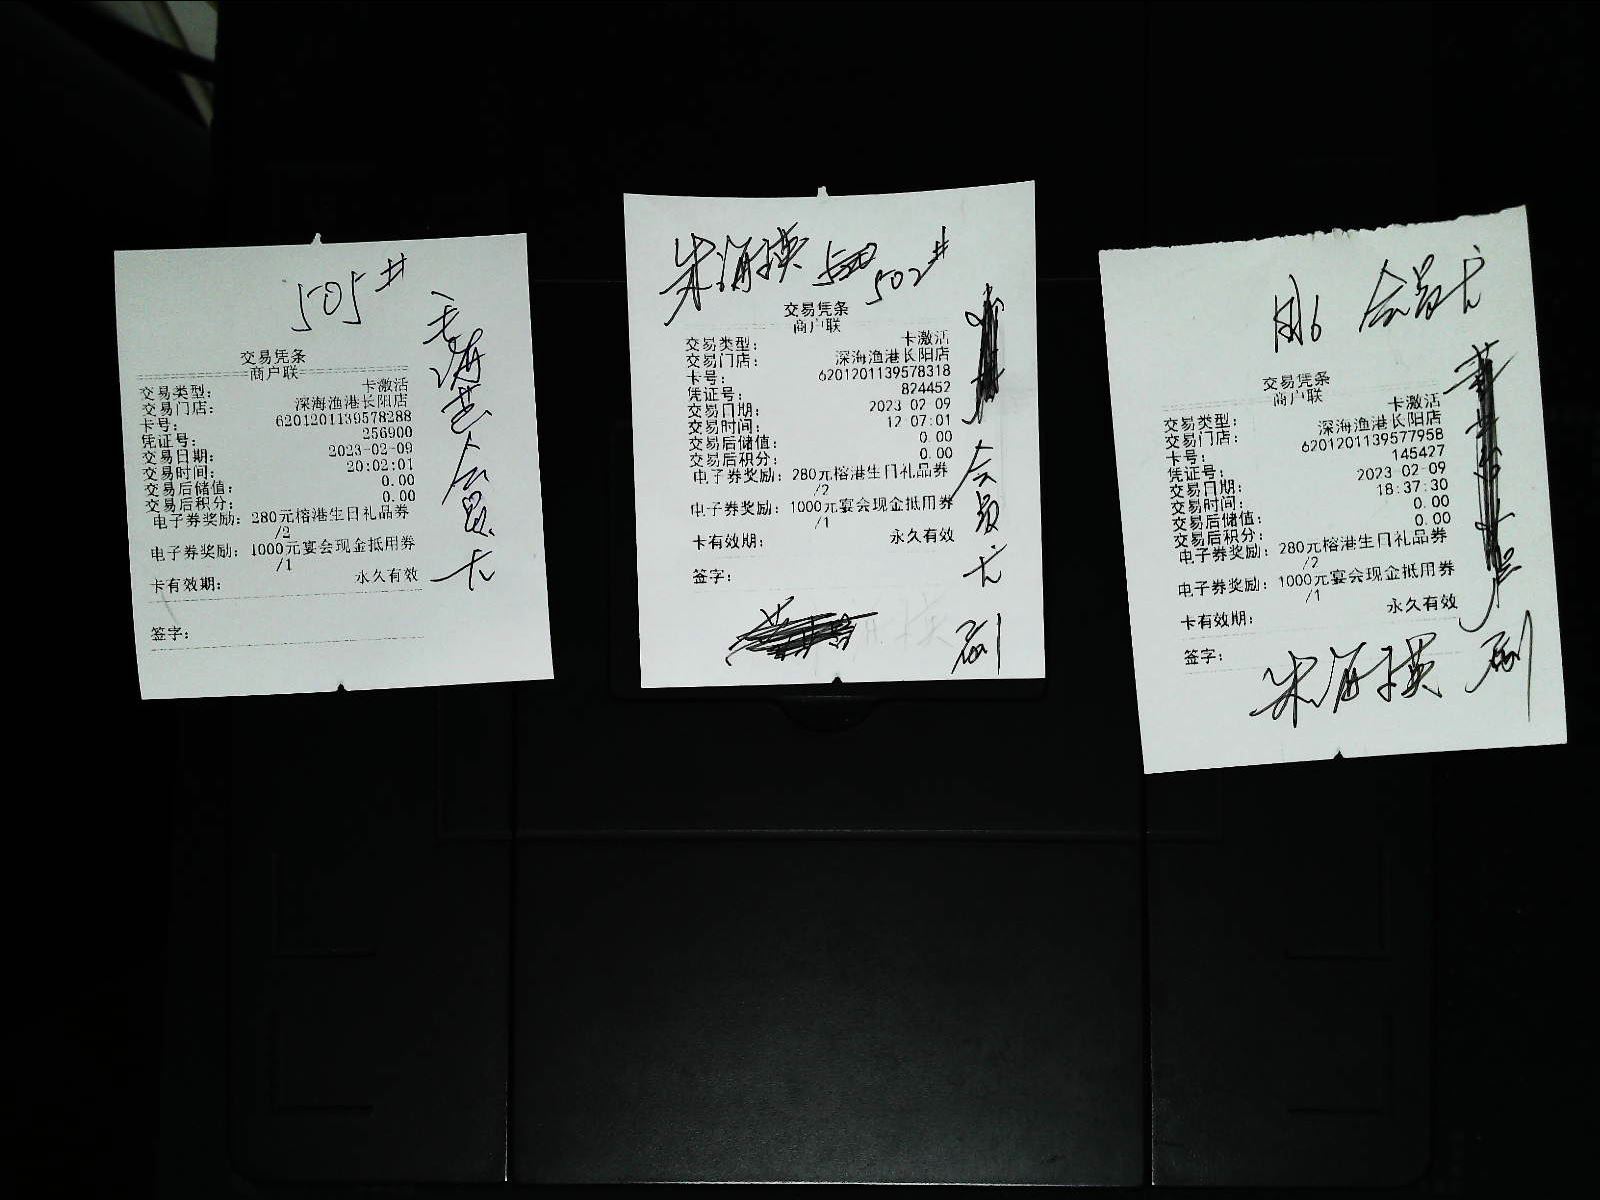 505#
交易凭条
商户联
交易类型： 卡激活
交易门店： 深海渔港长阳店
卡号： 6201201139578288
凭证号： 256900
交易日期： 2023-02-09
交易时间： 20:02:01
交易后储值： 0.00
交易后积分： 0.00
电子券奖励：280元榕港生日礼品券
/2
电子券奖励：1000元宴会现金抵用券
/1
卡有效期： 永久有效
签字：
会员卡
朱海瑛 502#
交易凭条
商户联
交易类型： 卡激活
交易门店： 深海渔港长阳店
卡号： 6201201139578318
凭证号： 824452
交易日期： 2023-02-09
交易时间： 12:07:01
交易后储值： 0.00
交易后积分： 0.00
电子券奖励：280元榕港生日礼品券
/2
电子券奖励：1000元宴会现金抵用券
/1
卡有效期： 永久有效
签字：
会员卡
会员卡
交易凭条
商户联
交易类型： 卡激活
交易门店： 深海渔港长阳店
卡号： 6201201139577958
凭证号： 145427
交易日期： 2023-02-09
交易时间： 18:37:30
交易后储值： 0.00
交易后积分： 0.00
电子券奖励：280元榕港生日礼品券
/2
电子券奖励：1000元宴会现金抵用券
/1
卡有效期： 永久有效
签字：
朱海瑛